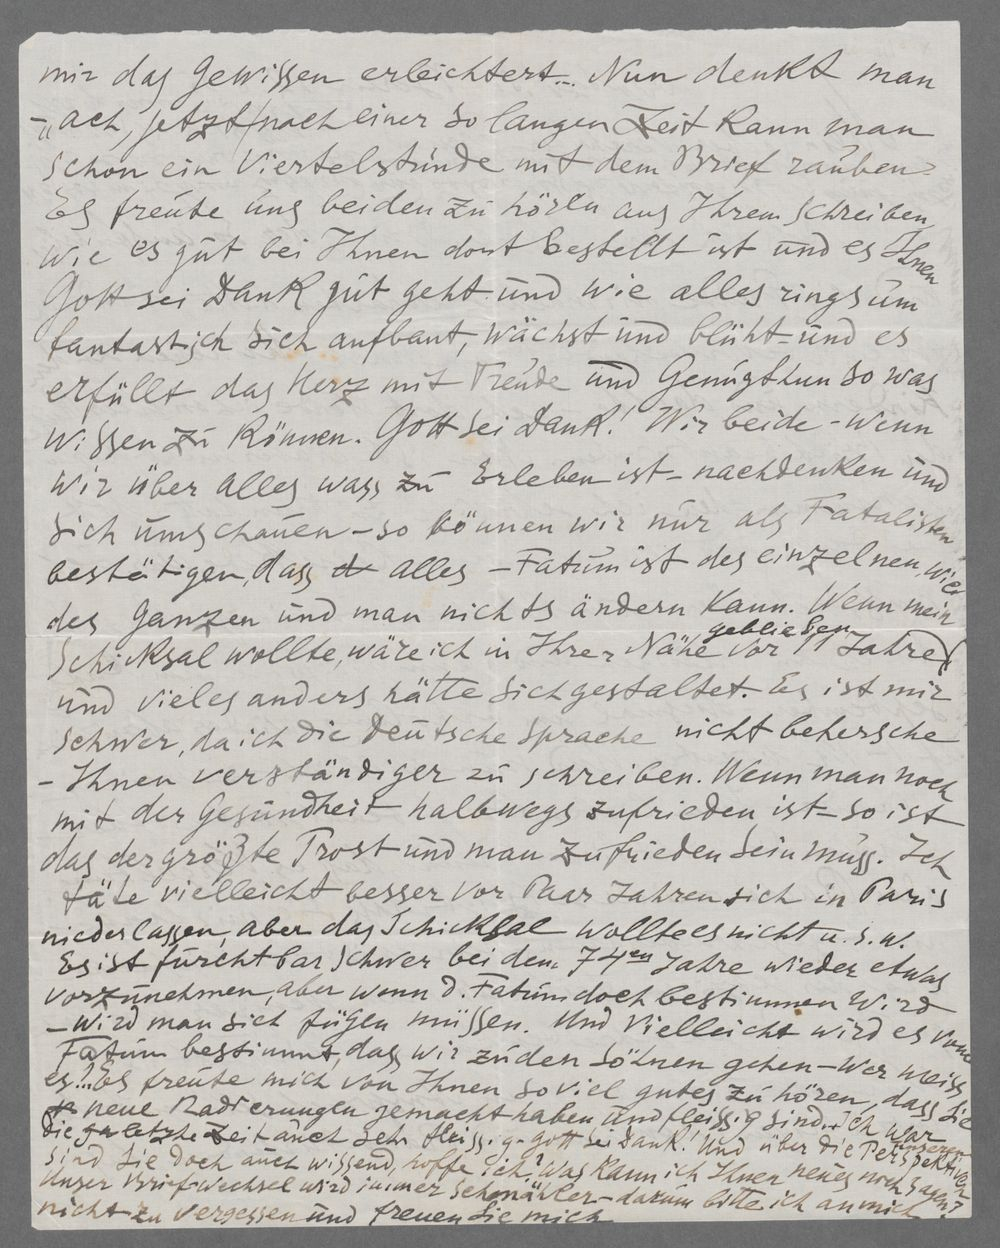 mir das Gewissen erleichtert... Nun denkt man
-„ach, jetzt nach einer so langen Zeit kann man
schon ein Viertelstunde mit dem Brief rauben-
Es freute uns beiden zu hören aus Ihrem Schreiben,
wie es gut bei Ihnen dort bestellt ist und es Ihnen
Gott sei Dank gut geht und wie alles ringsum
fantastisch sich aufbaut, wächst und blüht- und es
erfüllt das Herz mit Freude und Genugthun so was
wissen zu können. Gott sei Dank! Wir beide - wenn
wir über alles wass zu Erleben ist - nachdenken und
sich umschauen - so können wir nur als Fatalisten
bestätigen, dass alles - Fatum ist des einzelnen, wie
des Ganzen und man nichts ändern kann. Wenn mein
Schicksal wollte, wäre ich in Ihrer Nähe geblieben vor 11 Jahren
und vieles anders hätte sich gestaltet. Es ist mir
schwer, da ich die Deutsche Sprache nicht behersche
- Ihnen verständiger zu schreiben. Wenn man noch
mit der Gesundheit halbwegs zufrieden ist - so ist
das der größte Trost und man zufrieden sein muss. Ich
täte vielleicht besser vor Paar Jahren sich in Paris
niederlassen, aber das Schicksal wollte es nicht u.s.w.
Es ist fürchtbar schwer bei dem 74en Jahre wieder etwas
vorzunehmen, aber wenn d. Fatum doch bestimmen wird
- wird man sich fügen müssen. Und vielleicht wird es vom
Fatum bestimmt, dass wir zu den Söhnen gehen - wer weiss
es!.. Es freute mich von Ihnen so viel gutes zu hören, dass Sie
neue Radierungen gemacht haben und fleissig sind... Ich war
die letzte Zeit auch sehr fleissig - Gott sei Dank! Und über die unseren Perspektiven
sind Sie doch auch wissend, hoffe ich? Was kann ich Ihnen neues noch sagen?
Unser Briefwechsel wird immer - darum bitte ich an mich
nicht zu vergessen und freuen Sie mich